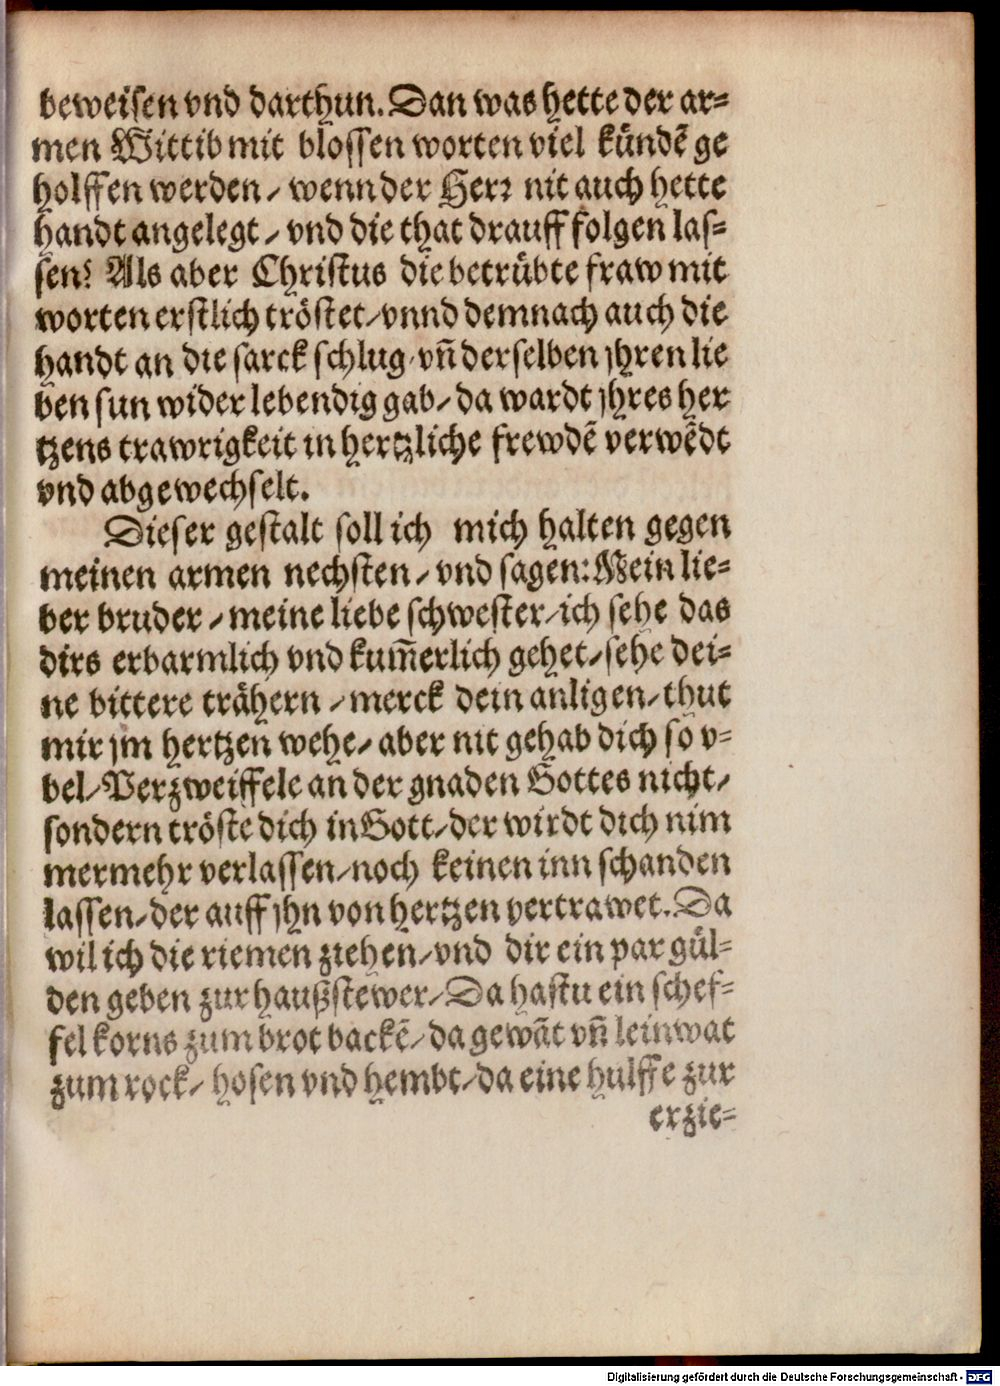 beweisen vnd darthun. Dan was hette der ar-
men Wittib mit blossen worten viel kündē ge
holffen werden / wenn der Herr nit auch hette
handt angelegt / vnd die that drauff folgen las-
sen? Als aber Christus die betrübte fraw mit
worten erstlich tröstet / vnnd demnach auch die
handt an die sarck schlug / vñ derselben jhren lie
ben sun wider lebendig gab / da wardt jhres her
tzens trawrigkeit in hertzliche frewdē verwēdt
vnd abgewechselt.
Dieser gestalt soll ich mich halten gegen
meinen armen nechsten / vnd sagen: Mein lie-
ber bruder / meine liebe schwester / ich sehe das
dirs erbarmlich vnd kum̄erlich gehet / sehe dei-
ne bittere trähern / merck dein anligen / thut
mir jm hertzen wehe / aber nit gehab dich so v-
bel / Verzweiffele an der gnaden Gottes nicht /
sondern tröste dich in Gott / der wirdt dich nim
mermehr verlassen / noch keinen inn schanden
lassen / der auff jhn von hertzen vertrawet. Da
wil ich die riemen ziehen / vnd dir ein par gül-
den geben zur haußstewer / Da hastu ein schef-
fel korns zum brot backē / da gewāt vñ leinwat
zum rock / hosen vnd hembt / da eine hulffe zur
erzie-
Digitalisierung gefördert durch die Deutsche Forschungsgemeinschaft - DFG